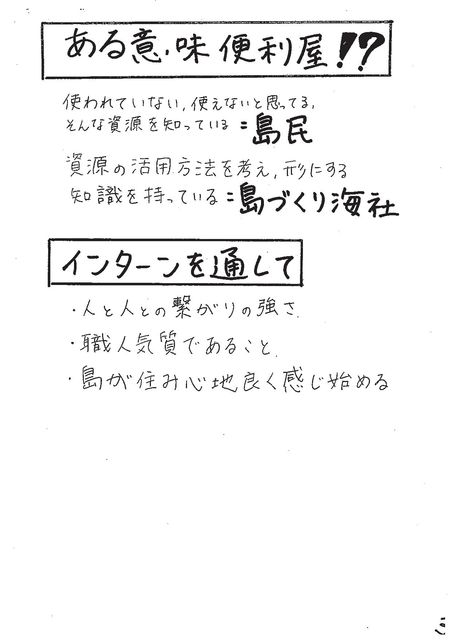 ある意味便利屋!?
使われていない,使えないと思ってる,
そんな資源を知っている=島民
資源の活用方法を考え,形にする
知識を持っている=島づくり海社
インターンを通して
・人と人との繋がりの強さ
・職人気質であること
・島が住み心地良く感じ始める